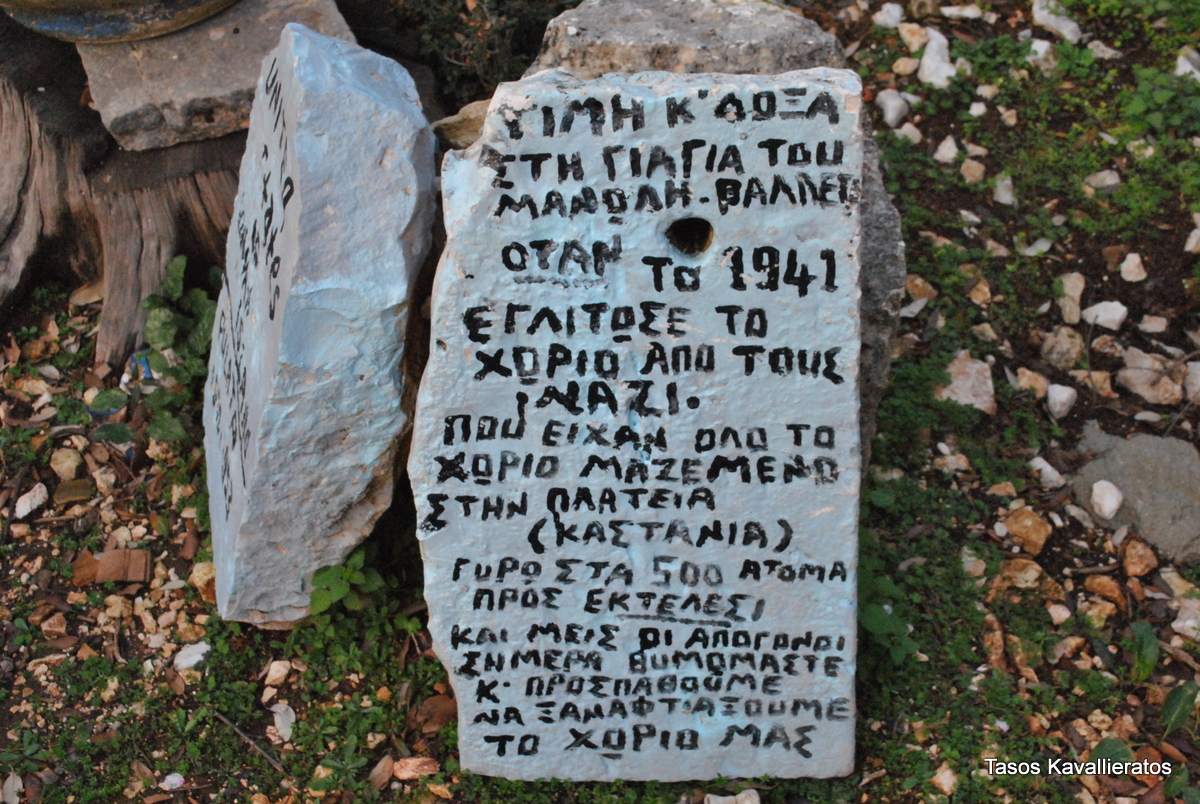 ΤΙΜΗ Κ' ΔΟΞΑ
ΣΤΗ ΓΙΑΓΙΑ ΤΟΥ
ΜΑΝΩΛΗ. ΒΑΛΛΕΤ
ΟΤΑΝ
ΤΟ 1941
ΕΓΛΙΤΩΣΕ ΤΟ
ΧΩΡΙΟ ΑΠΟ ΤΟΥΣ
ΝΑΖΙ.
ΠΟΥ ΕΙΧΑΝ ΟΛΟ ΤΟ
ΧΩΡΙΟ ΜΑΖΕΜΕΝΟ
ΣΤΗΝ ΠΛΑΤΕΙΑ
(ΚΑΣΤΑΝΙΑ)
ΓΥΡΩ ΣΤΑ 500 ΑΤΟΜΑ
ΠΡΟΣ ΕΚΤΕΛΕΣΙ
ΚΑΙ ΜΕΙΣ ΟΙ ΑΠΟΓΟΝΟΙ
ΣΗΜΕΡΑ ΘΥΜΩΜΑΣΤΕ
Κ. ΠΡΟΣΠΑΘΟΥΜΕ
ΝΑ ΞΑΝΑΦΤΙΑΞΟΥΜΕ
ΤΟ ΧΩΡΙΟ ΜΑΣ
Tasos Kavallieratos